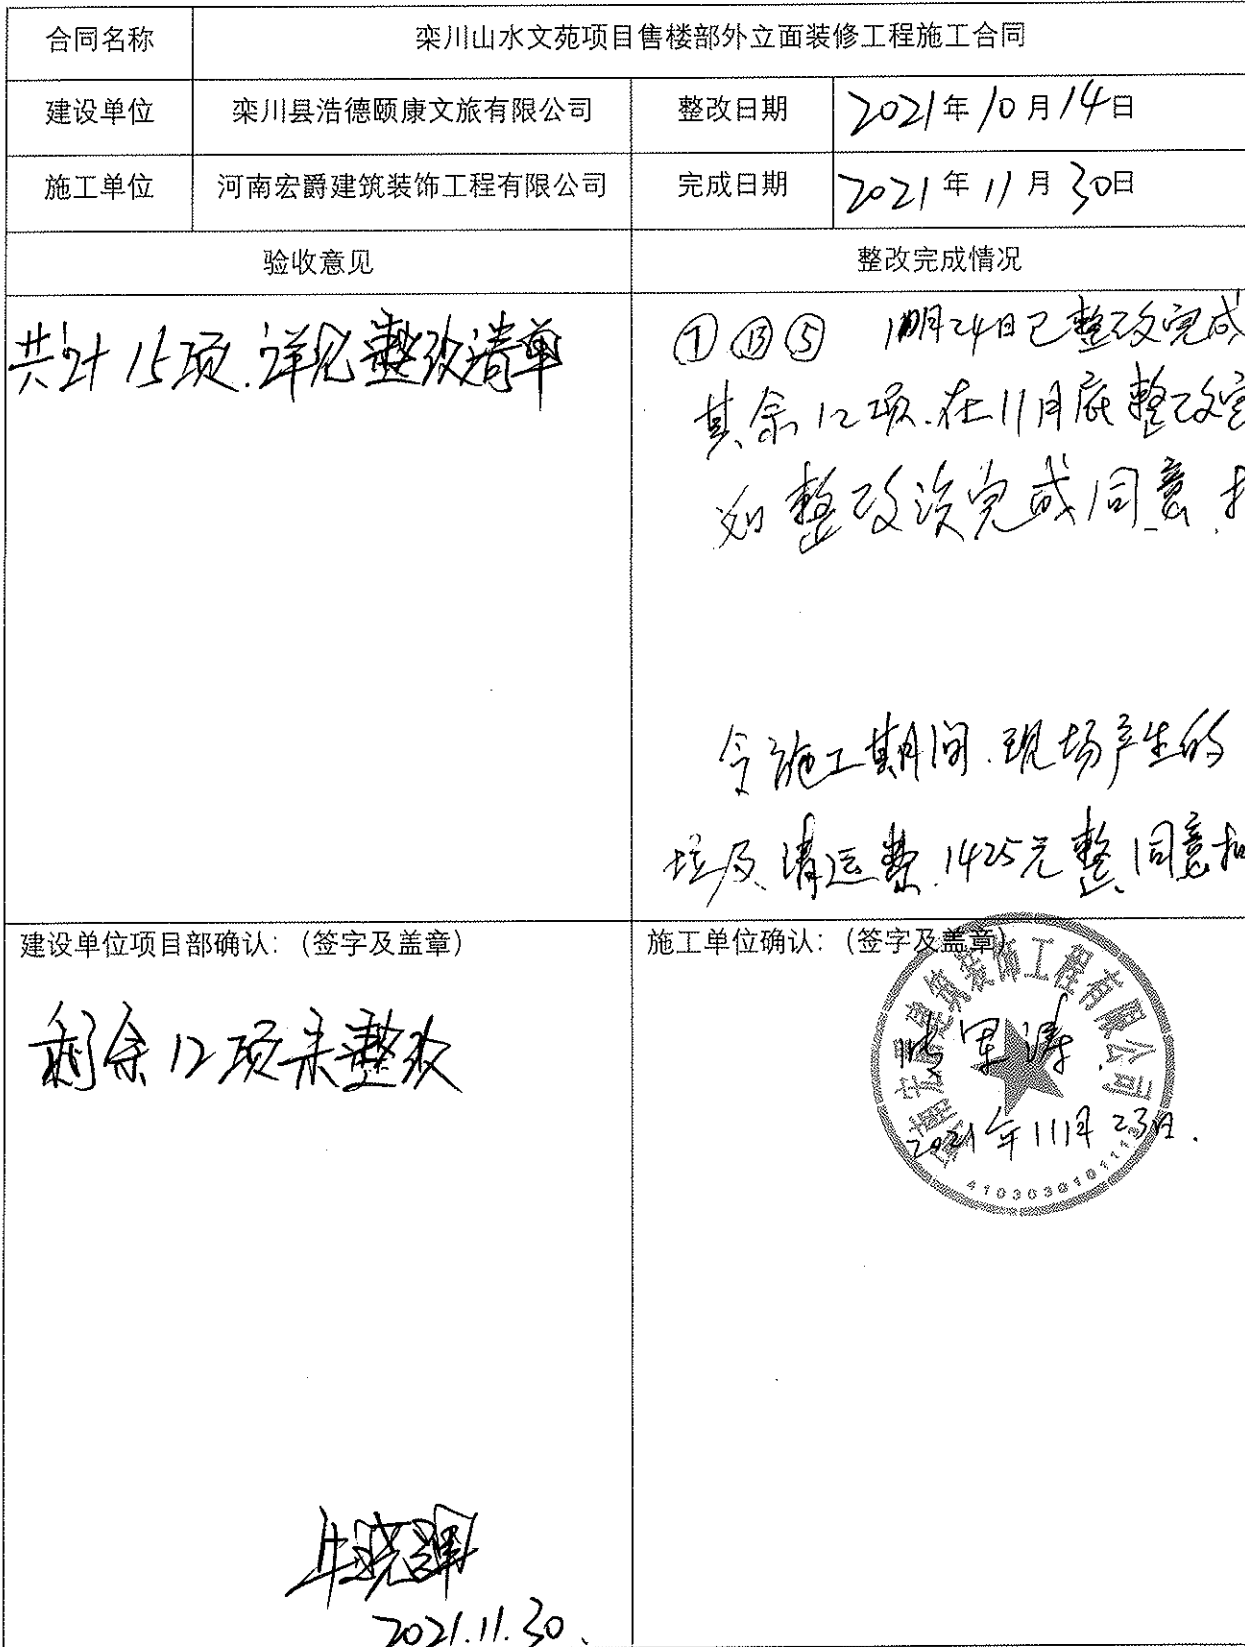 合同名称 栾川山水文苑项目售楼部外立面装修工程施工合同
建设单位 栾川县浩德颐康文旅有限公司 整改日期 2021年10月14日
施工单位 河南宏爵建筑装饰工程有限公司 完成日期 2021年11月30日
验收意见 整改完成情况
共计15项.详见整改清单
① ⑬ ⑤ 10月24日已整改完成
其余12项.在11月底整改完
如整改没完成同意.扣
令施工期间.现场产生的
垃圾清运费.1425元整.同意扣
建设单位项目部确认:(签字及盖章)
剩余12项未整改
牛晓辉
2021.11.30.
施工单位确认:(签字及盖章)
军涛
2021年11月23日.
河南宏爵建筑装饰工程有限公司